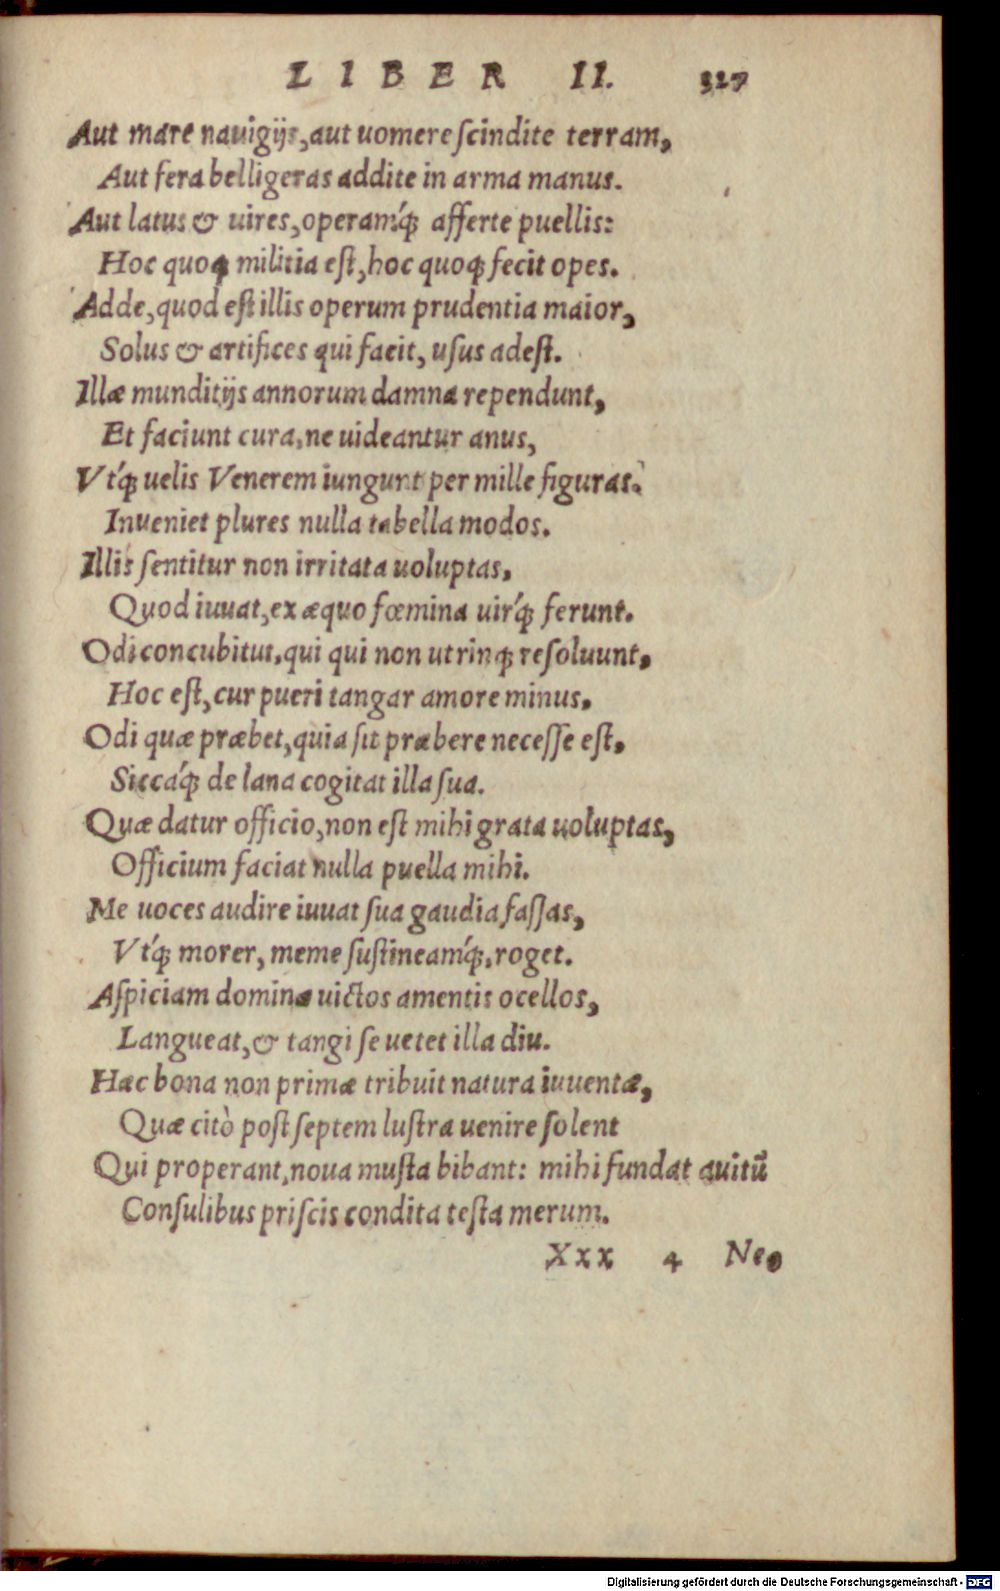 LIBER II. 327
Aut mare nauigijs, aut uomere scindite terram,
Aut fera belligeras addite in arma manus.
Aut latus & uires, operamq́; afferte puellis:
Hoc quoq; militia est, hoc quoq; fecit opes.
Adde, quod est illis operum prudentia maior,
Solus & artifices qui facit, usus adest.
Illæ munditijs annorum damna rependunt,
Et faciunt cura, ne uideantur anus,
Vtq́; uelis Venerem iungunt per mille figuras.
Inveniet plures nulla tabella modos.
Illis sentitur non irritata uoluptas,
Quod iuuat, ex æquo fœmina uirq́; ferunt.
Odi concubitus, qui qui non utrinq; resoluunt,
Hoc est, cur pueri tangar amore minus.
Odi quæ præbet, quia sit præbere necesse est,
Siccaq́; de lana cogitat illa sua.
Quæ datur officio, non est mihi grata uoluptas,
Officium faciat nulla puella mihi.
Me uoces audire iuuat sua gaudia fassas,
Vtq́; morer, meme sustineamq́;, roget.
Aspiciam dominæ uictos amentis ocellos,
Langueat, & tangi se uetet illa diu.
Hæc bona non primæ tribuit natura iuuentæ,
Quæ citò post septem lustra uenire solent
Qui properant, noua musta bibant: mihi fundat auitū
Consulibus priscis condita testa merum.
Xxx 4 Ne,
Digitalisierung gefördert durch die Deutsche Forschungsgemeinschaft - DFG